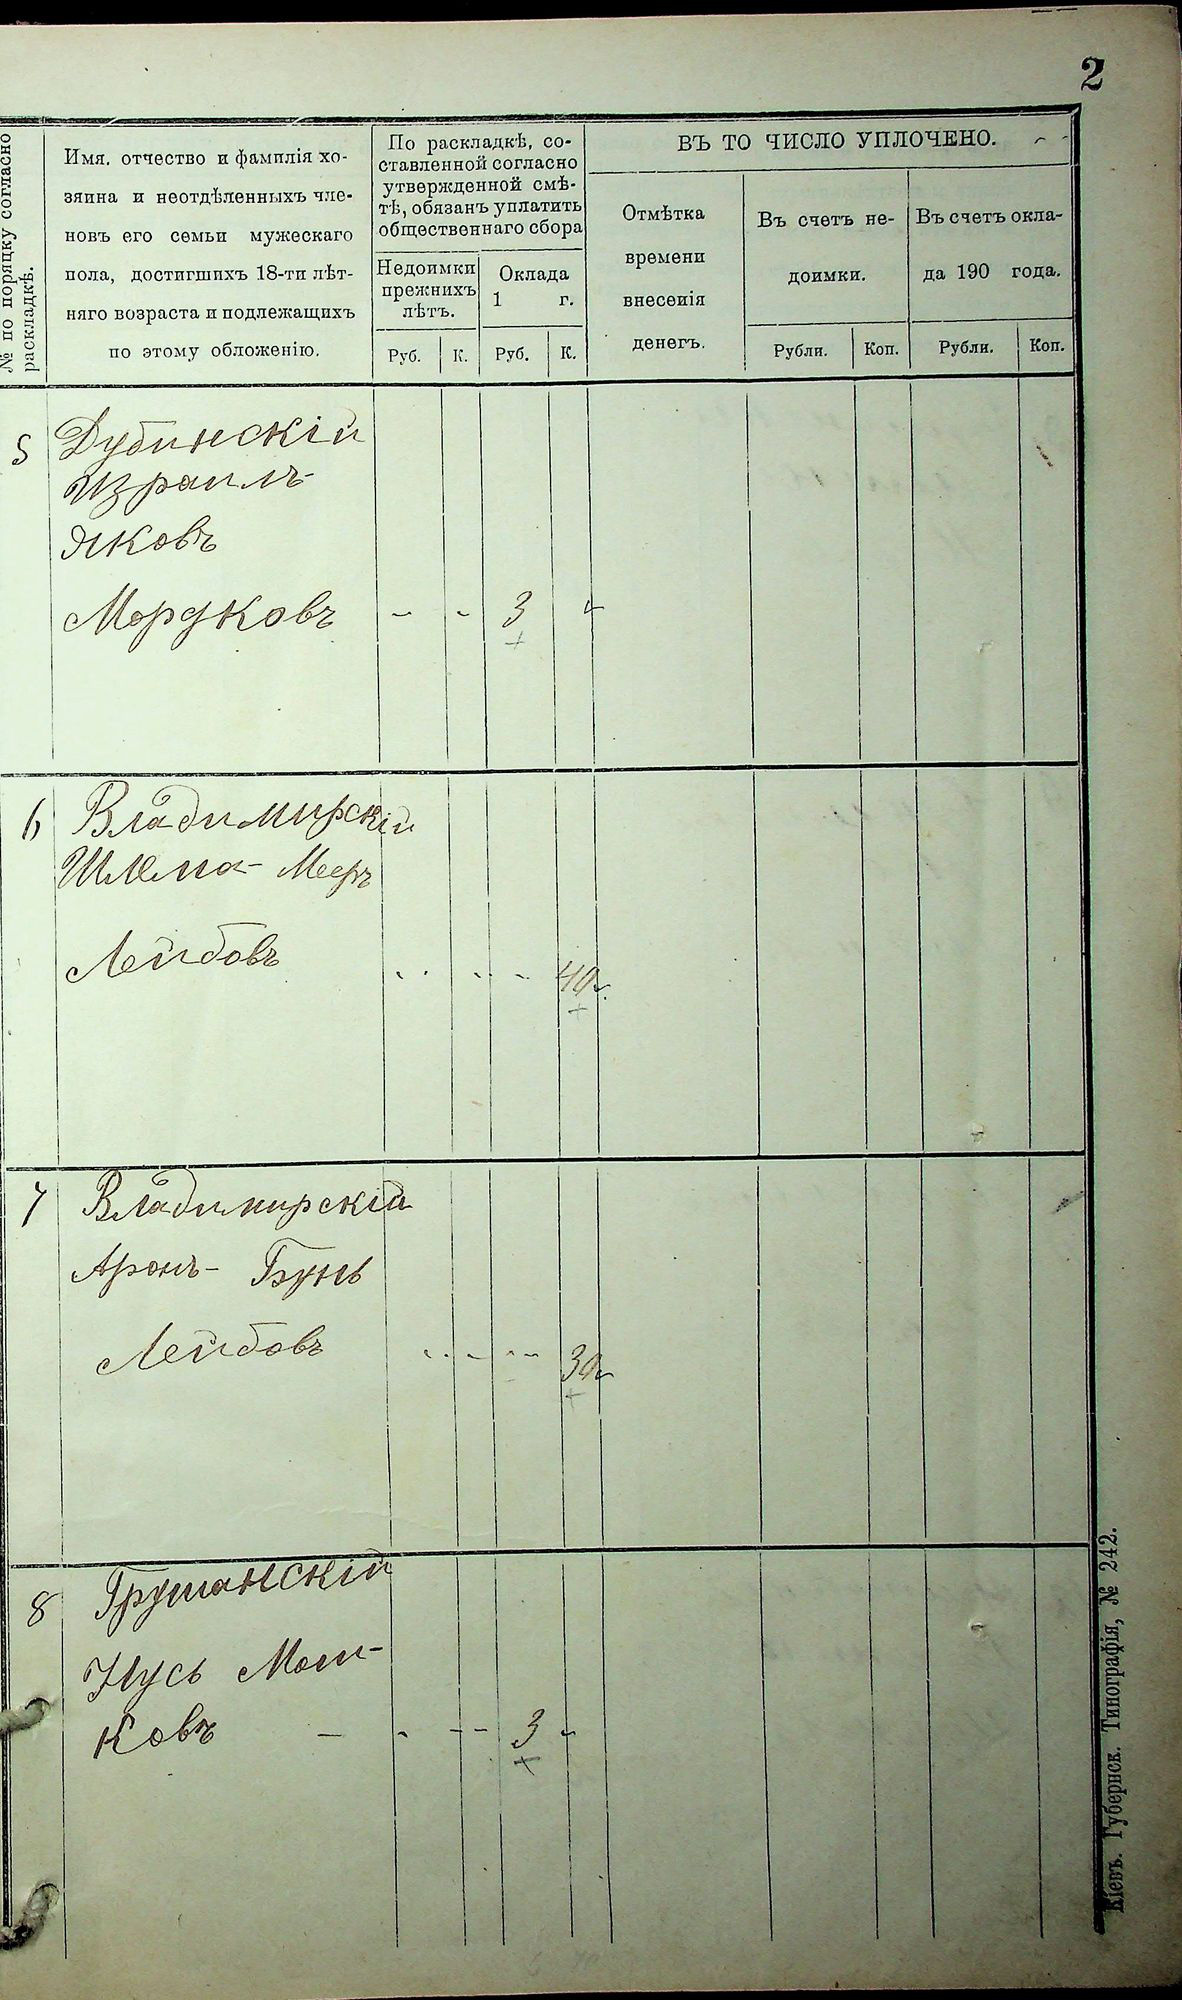 2
№ по поряцку согласно
раскладкѣ.
Имя, отчество и фамилія хо-
зяина и неотдѣленныхъ чле-
новъ его семьи мужескаго
пола, достигшихъ 18-ти лѣт-
няго возраста и подлежащихъ
по этому обложенію.
По раскладкѣ, со-
ставленной согласно
утвержденной смѣ-
тѣ, обязанъ уплатить
общественнаго сбора
Недоимки
прежнихъ
лѣтъ.
Оклада
1 г.
Руб. К. Руб. К.
ВЪ ТО ЧИСЛО УПЛОЧЕНО.
Отмѣтка
времени
внесенія
денегъ.
Въ счетъ не-
доимки.
Въ счетъ окла-
да 190 года.
Рубли. Коп. Рубли. Коп.
5 Дубинскій
Израиль-
Яковъ
Мордковъ - - 3 -
6 Владимирскій
Шлема- Мееръ
Лейбовъ - - - 40
7 Владимирскій
Аронъ- Бунь
Лейбовъ - - - 30
8 Грушанскій
Нусь Мош-
ковъ - - - 3 -
Кіевъ. Губернск. Типографія, № 242.